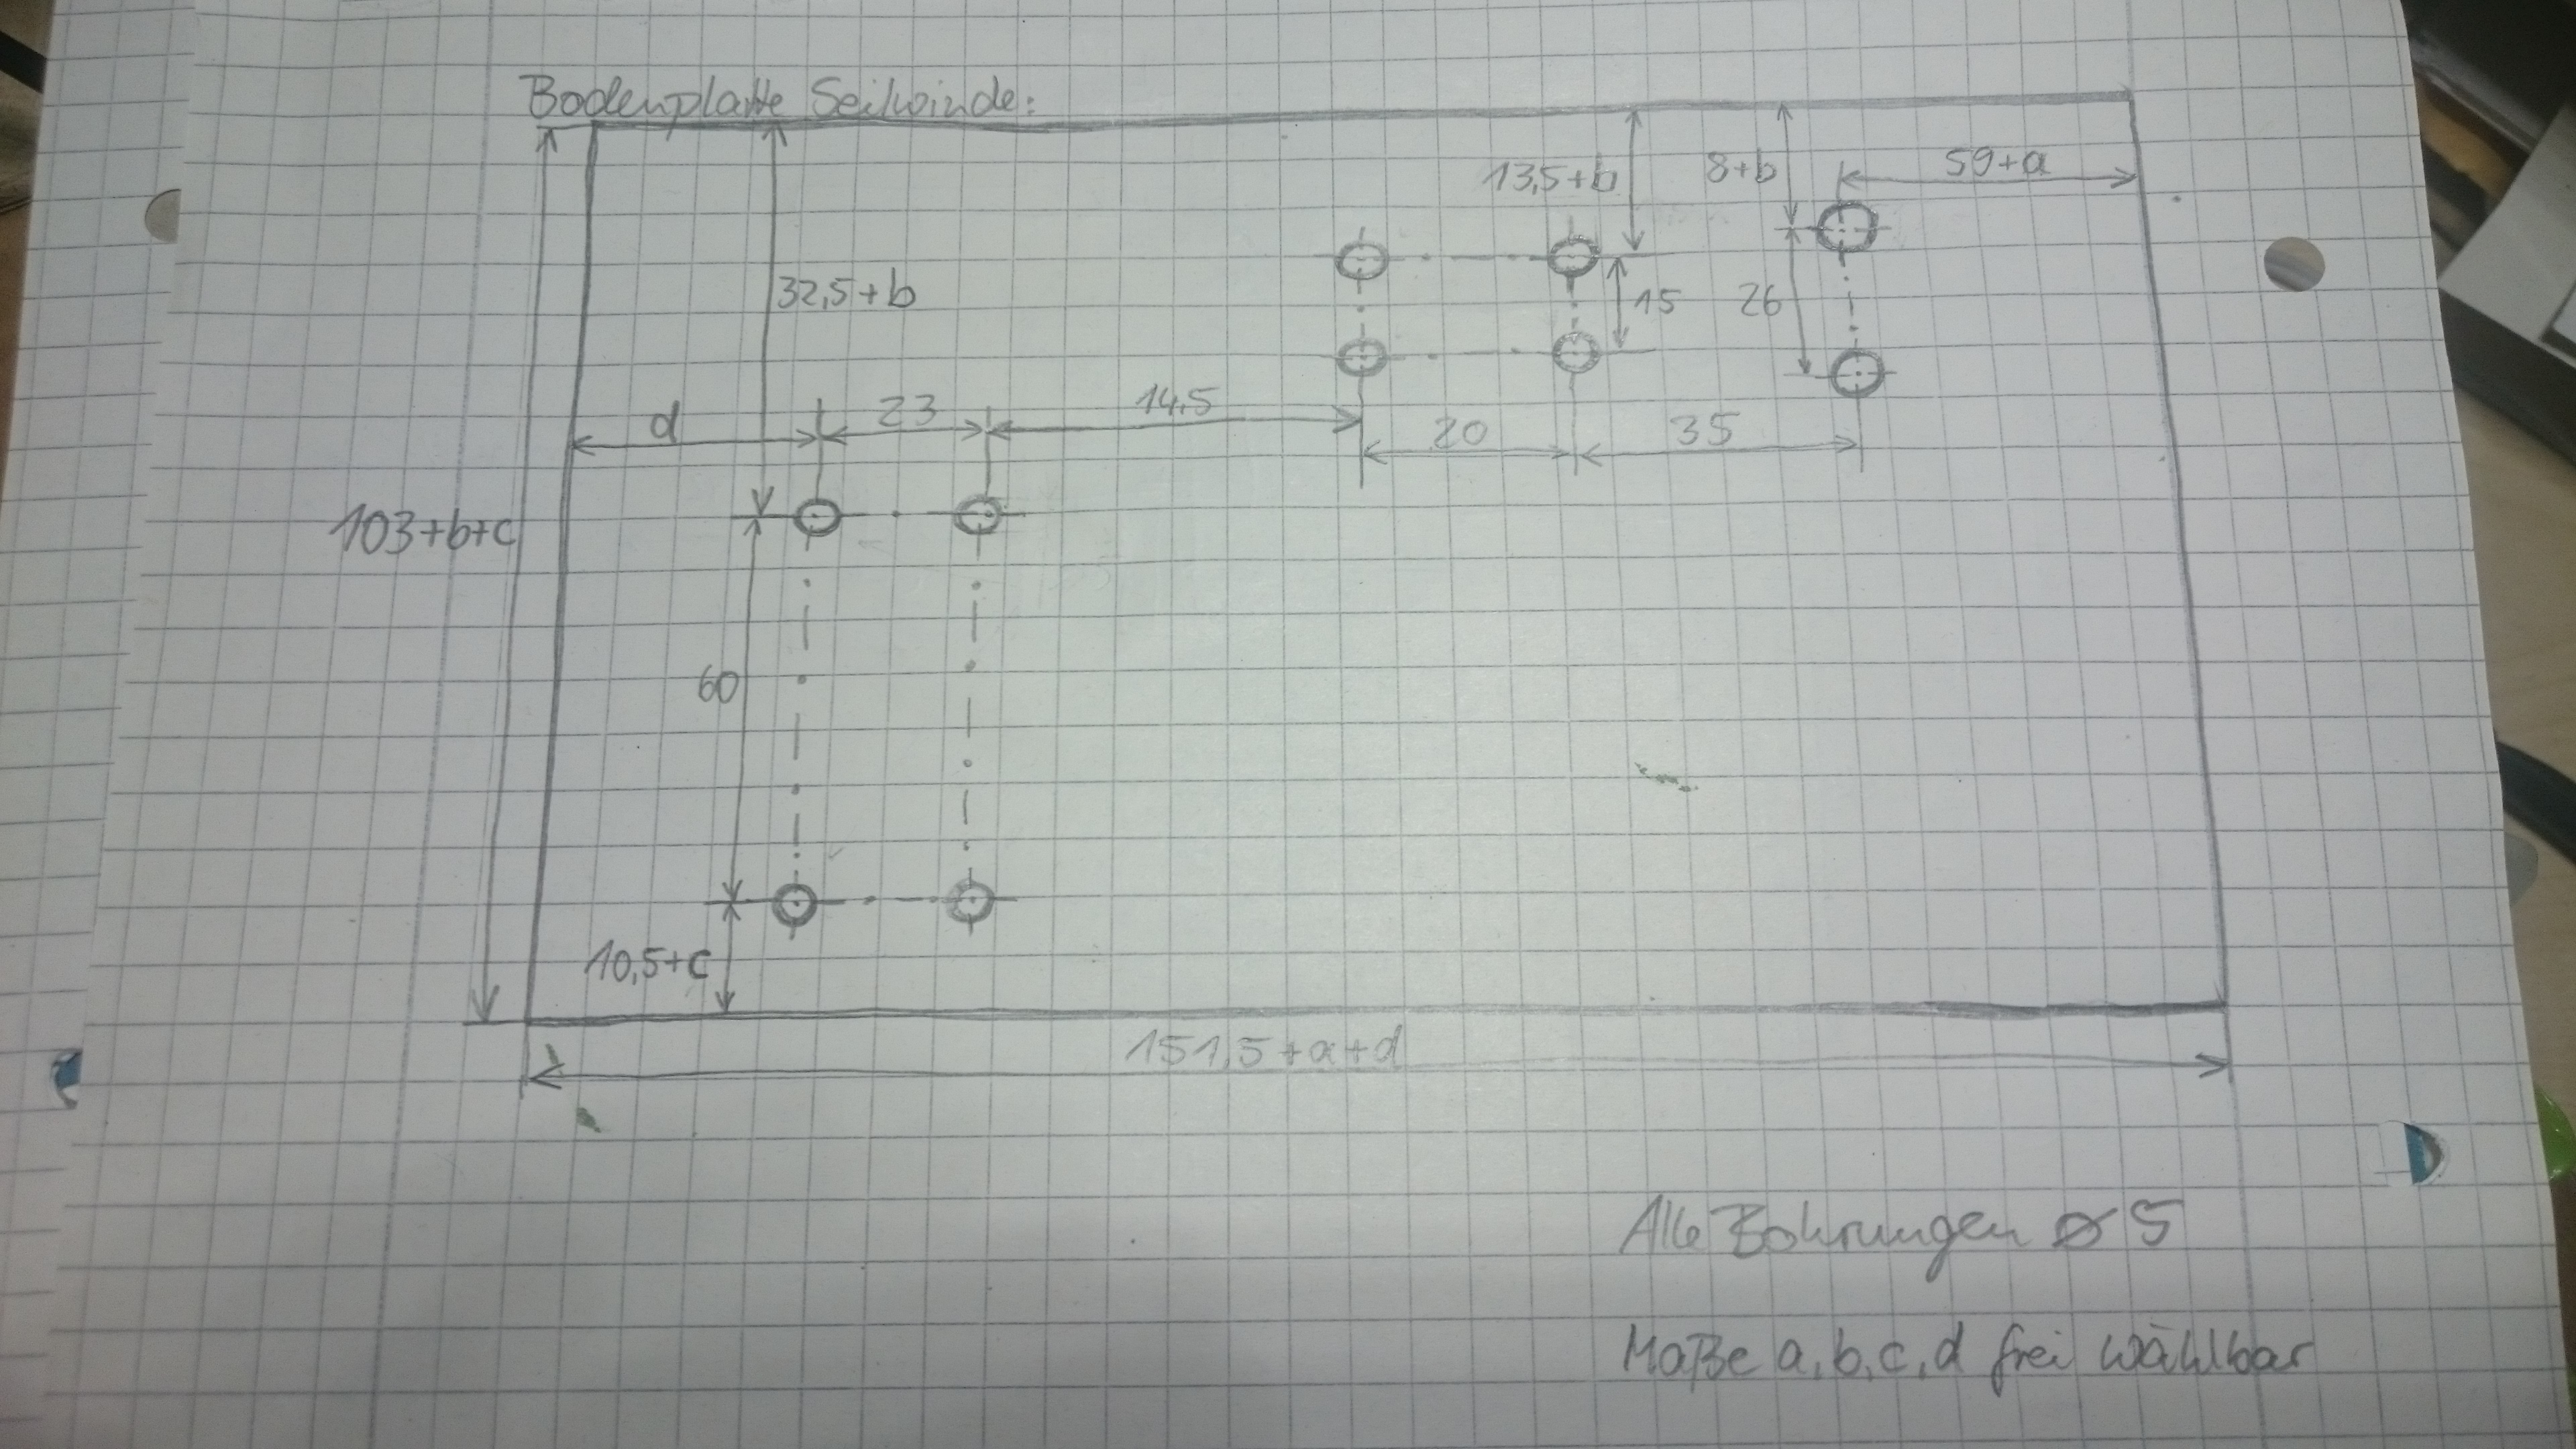 Bodenplatte Seilwinde:
13,5+b
8+b
59+a
32,5+b
15
26
d
23
14,5
20
35
103+b+c
60
10,5+c
151,5+a+d
Alle Bohrungen ⌀ 5
Maße a,b,c,d frei wählbar